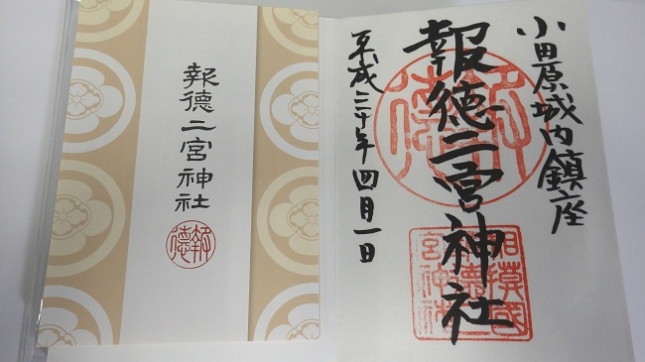 小田原城内鎮座
報徳二宮神社
平成三十年四月一日
報徳
相模國
報徳二宮神社
報徳